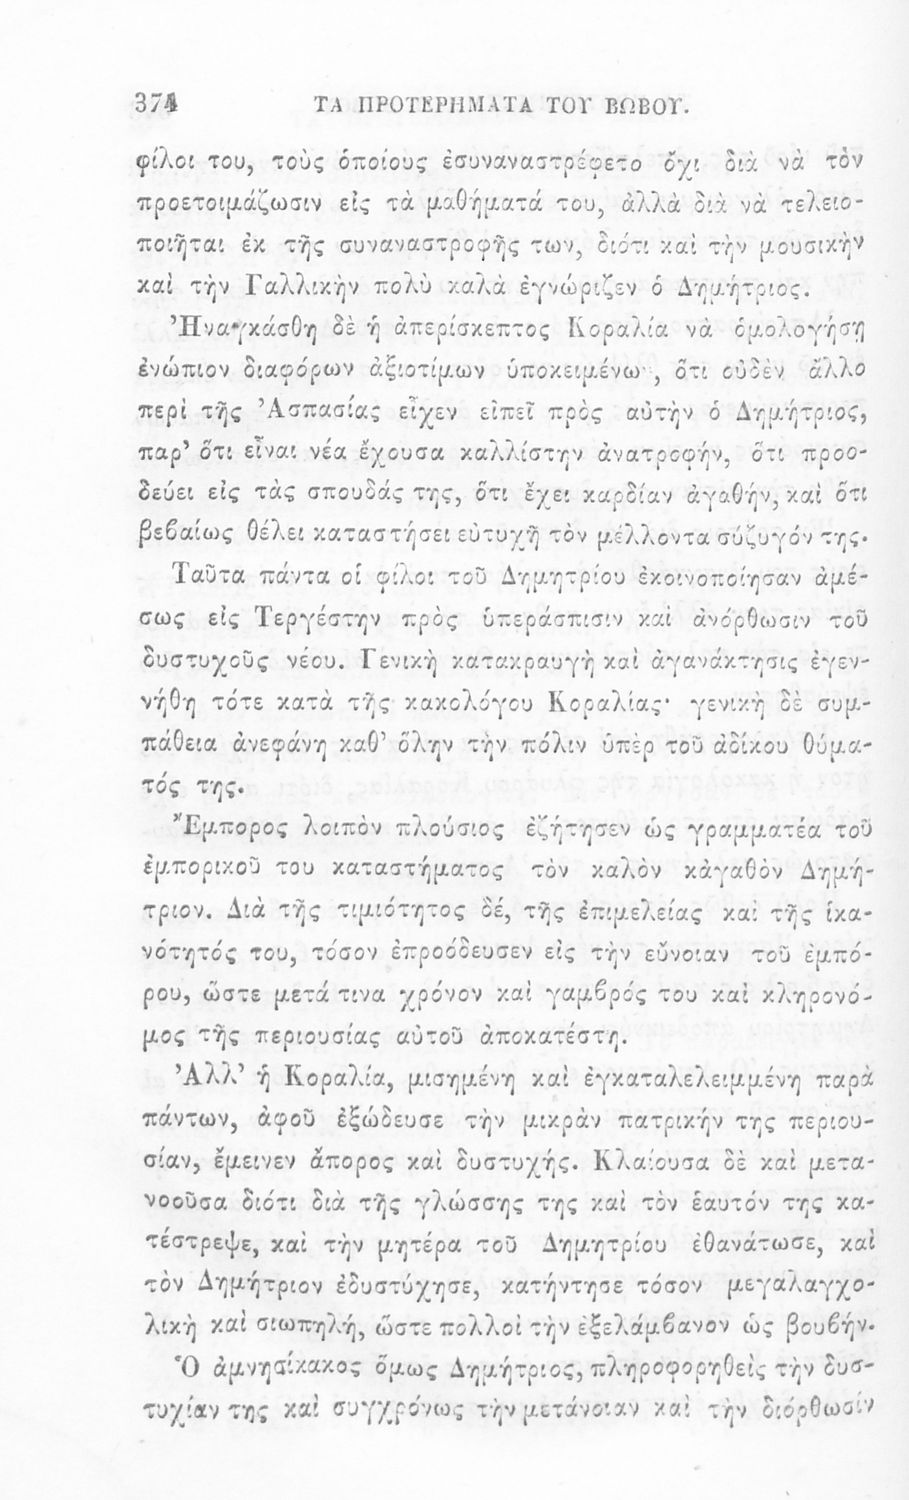 374 ΤΑ ΠΡΟΤΕΡΗΜΑΤΑ ΤΟΥ ΒΩΒΟΥ.
φίλοι του, τοὺς ὁποίους ἐσυναναστρέφετο ὄχι διὰ νὰ τὸν
προετοιμάζωσιν εἰς τὰ μαθήματά του, ἀλλὰ διὰ νὰ τελειο-
ποιῆται ἐκ τῆς συναναστροφῆς των, διότι καὶ τὴν μουσικὴν
καὶ τὴν Γαλλικὴν πολὺ καλὰ ἐγνώριζεν ὁ Δημήτριος.
Ἠναγκάσθη δὲ ἡ ἀπερίσκεπτος Κοραλία νὰ ὁμολογήσῃ
ἐνώπιον διαφόρων ἀξιοτίμων ὑποκειμένων, ὅτι οὐδὲν ἄλλο
περὶ τῆς Ἀσπασίας εἶχεν εἰπεῖ πρὸς αὐτὴν ὁ Δημήτριος,
παρ’ ὅτι εἶναι νέα ἔχουσα καλλίστην ἀνατροφήν, ὅτι προο-
δεύει εἰς τὰς σπουδάς της, ὅτι ἔχει καρδίαν ἀγαθήν, καὶ ὅτι
βεβαίως θέλει καταστήσει εὐτυχῆ τὸν μέλλοντα σύζυγόν της.
Ταῦτα πάντα οἱ φίλοι τοῦ Δημητρίου ἐκοινοποίησαν ἀμέ-
σως εἰς Τεργέστην πρὸς ὑπεράσπισιν καὶ ἀνόρθωσιν τοῦ
δυστυχοῦς νέου. Γενικὴ κατακραυγὴ καὶ ἀγανάκτησις ἐγεν-
νήθη τότε κατὰ τῆς κακολόγου Κοραλίας· γενικὴ δὲ συμ-
πάθεια ἀνεφάνη καθ’ ὅλην τὴν πόλιν ὑπὲρ τοῦ ἀδίκου θύμα-
τός της.
Ἔμπορος λοιπὸν πλούσιος ἐζήτησεν ὡς γραμματέα τοῦ
ἐμπορικοῦ του καταστήματος τὸν καλὸν κἀγαθὸν Δημή-
τριον. Διὰ τῆς τιμιότητος δέ, τῆς ἐπιμελείας καὶ τῆς ἱκα-
νότητός του, τόσον ἐπροόδευσεν εἰς τὴν εὔνοιαν τοῦ ἐμπό-
ρου, ὥστε μετά τινα χρόνον καὶ γαμβρός του καὶ κληρονό-
μος τῆς περιουσίας αὐτοῦ ἀποκατέστη.
Ἀλλ’ ἡ Κοραλία, μισημένη καὶ ἐγκαταλελειμμένη παρὰ
πάντων, ἀφοῦ ἐξώδευσε τὴν μικρὰν πατρικήν της περιου-
σίαν, ἔμεινεν ἄπορος καὶ δυστυχής. Κλαίουσα δὲ καὶ μετα-
νοοῦσα διότι διὰ τῆς γλώσσης της καὶ τὸν ἑαυτόν της κα-
τέστρεψε, καὶ τὴν μητέρα τοῦ Δημητρίου ἐθανάτωσε, καὶ
τὸν Δημήτριον ἐδυστύχησε, κατήντησε τόσον μεγαλαγχο-
λικὴ καὶ σιωπηλή, ὥστε πολλοὶ τὴν ἐξελάμβανον ὡς βουβήν.
Ὁ ἀμνησίκακος ὅμως Δημήτριος, πληροφορηθεὶς τὴν δυσ-
τυχίαν της καὶ συγχρόνως τὴν μετάνοιαν καὶ τὴν διόρθωσίν